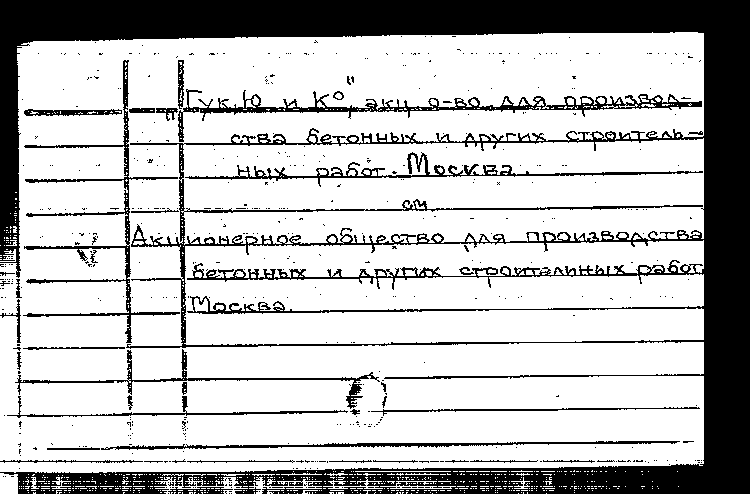 „Гук, Ю и К°", акц о-во для производ-
ства бетонных и других строитель-
ных работ. Москва.
см
Акционерное общество для производства
бетонных и других строительных работ
Москва.